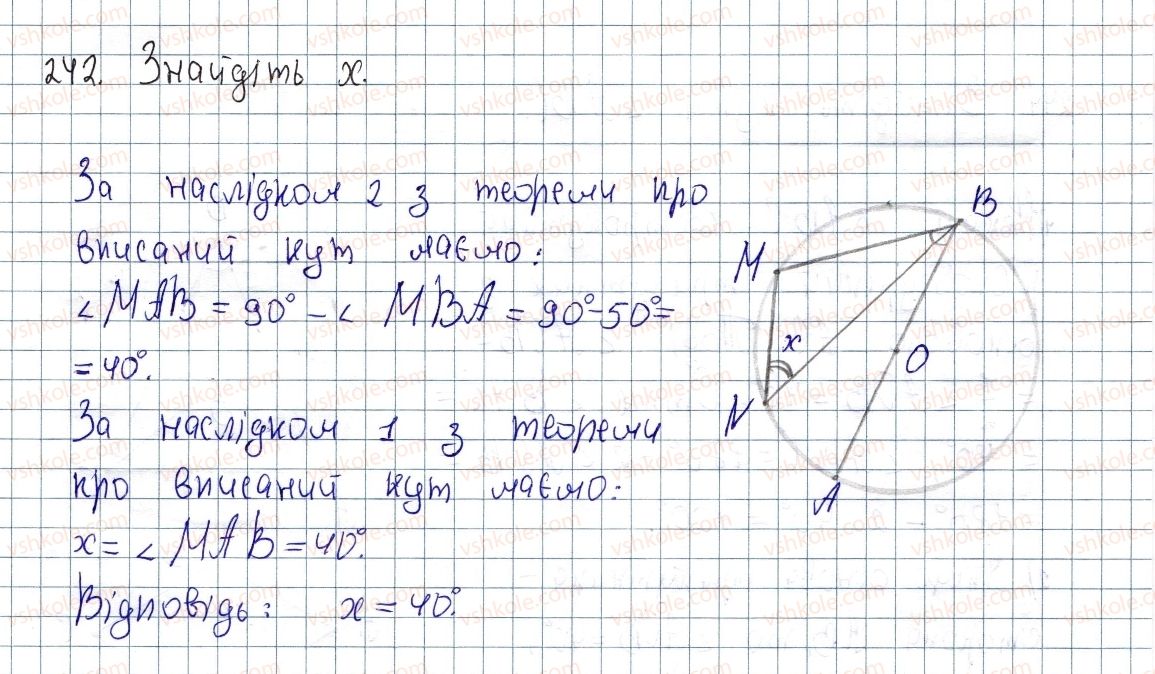 242. Знайдіть x.
За наслідком 2 з теореми про
вписаний кут маємо:
∠MAB = 90° - ∠MBA = 90° - 50° =
= 40°.
За наслідком 1 з теореми
про вписаний кут маємо:
x = ∠MAB = 40°.
Відповідь: x = 40°.
B
M
x
O
N
A
vshkole.com